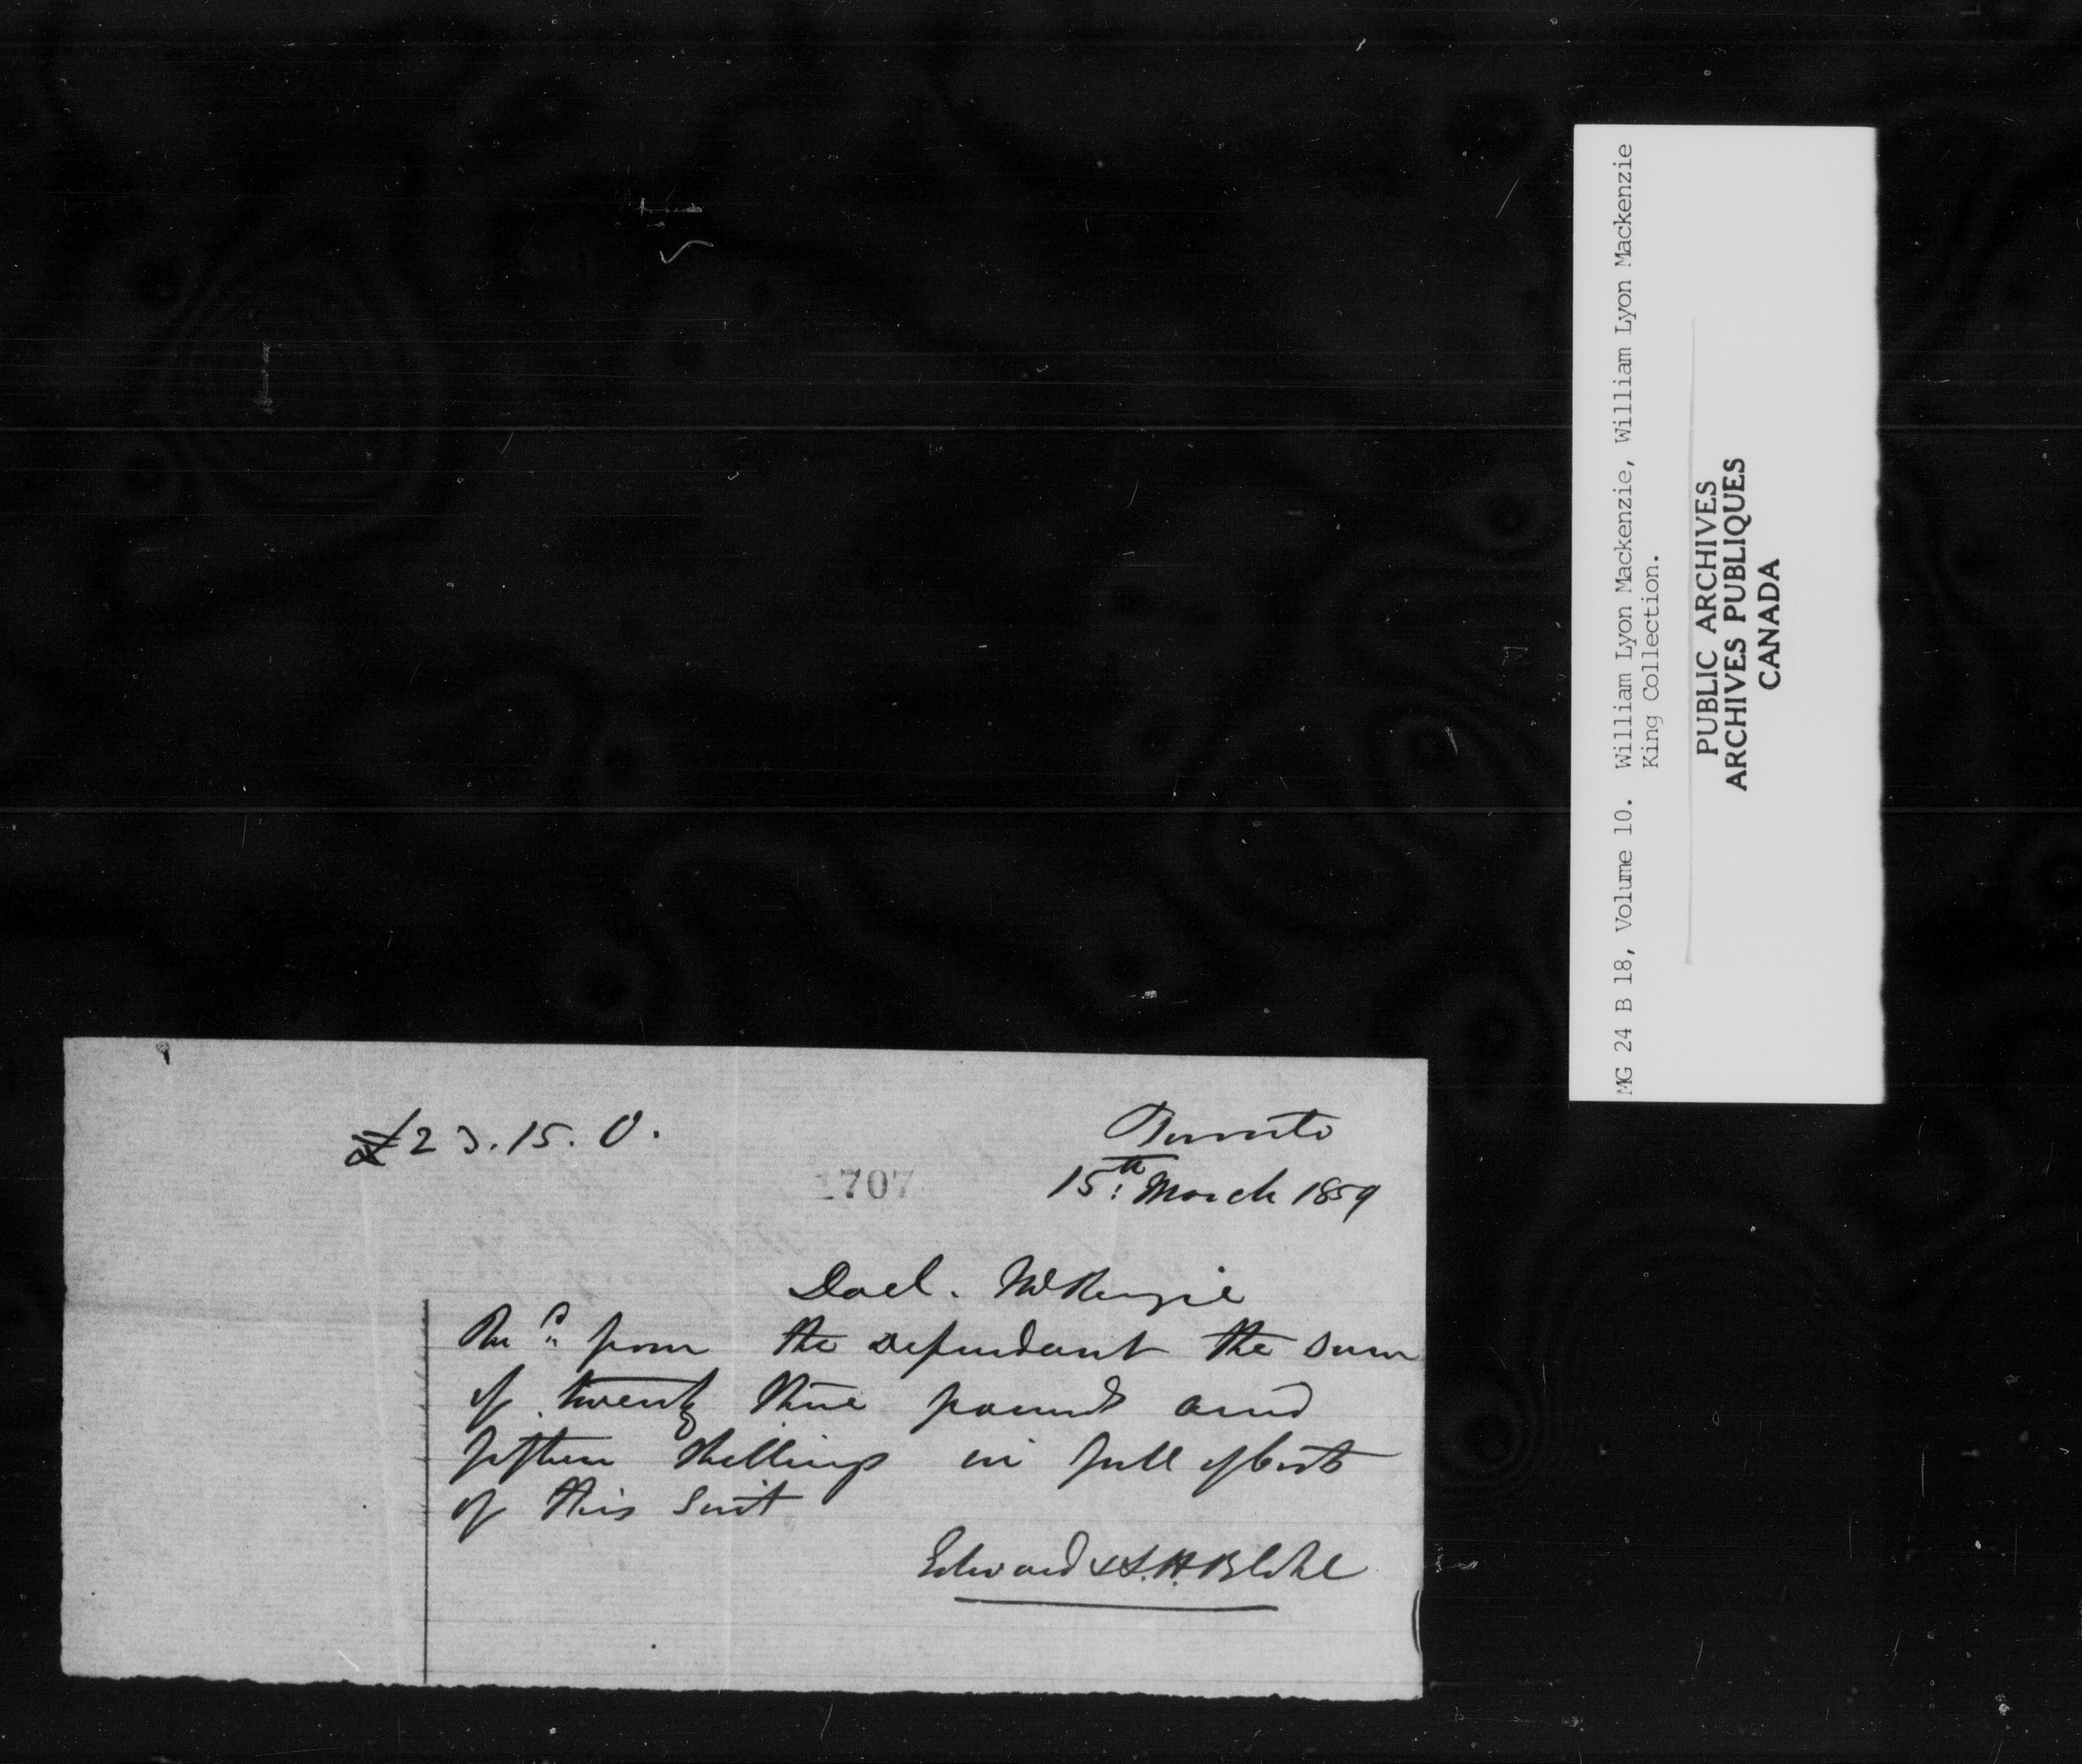 £23.15.0.
Toronto
1707
15th March 1859
Doel. McKenzie
Recd from the Defendant the sum
of twenty three pounds and
fifteen shillings in full of costs
of this suit
Edward & S. H. Blake
MG 24 B 18, Volume 10. William Lyon Mackenzie, William Lyon Mackenzie
King Collection.
PUBLIC ARCHIVES
ARCHIVES PUBLIQUES
CANADA